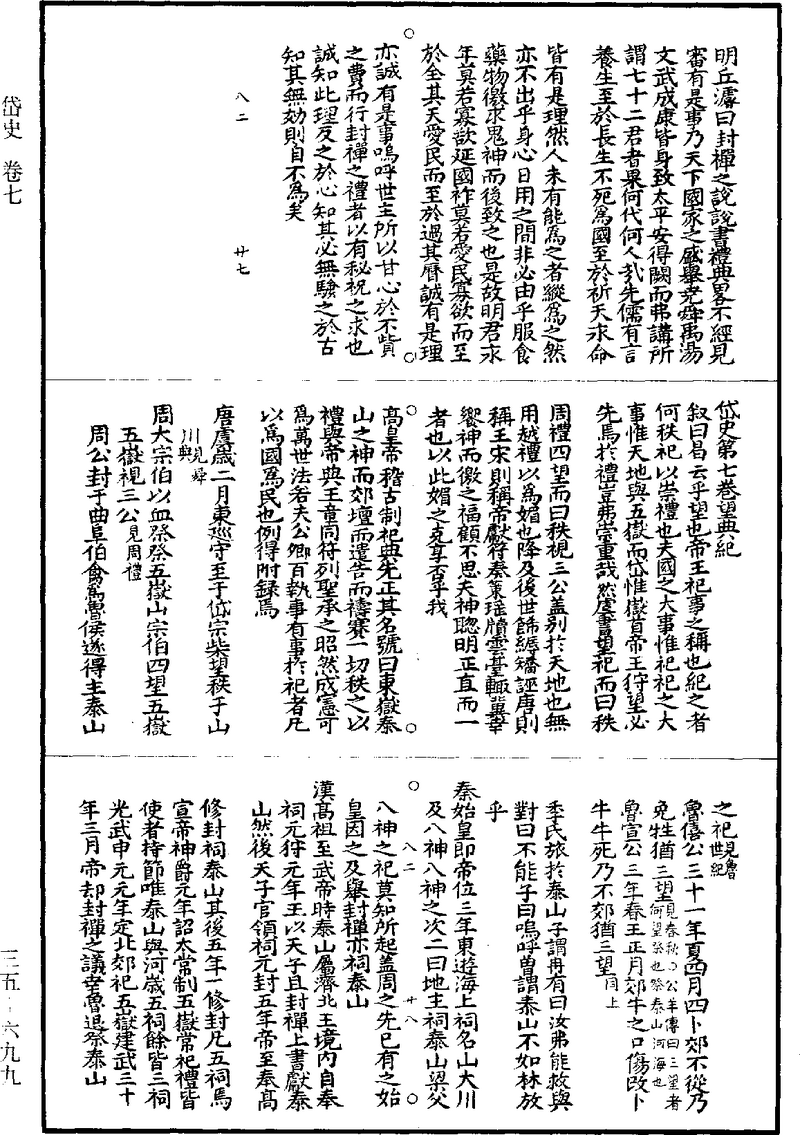 岱史　卷七
明丘濬曰封禪之說說書禮典畧不經見
審有是事乃天下國家之盛舉堯舜禹湯
文武成康皆身致太平安得闕而弗講所
謂七十二君者果何代何人哉先儒有言
養生至於長生不死爲國至於祈天永命
皆有是理然人未有能爲之者縱爲之然
亦不出乎身心日用之間非必由乎服食
藥物徼求鬼神而後致之也是故明君求
年莫若寡欲延國祚莫若愛民寡欲而至
於全其天愛民而至於過其曆誠有是理
亦誠有是事嗚呼世主所以甘心於不貲
之費而行封禪之禮者以有秘祝之求也
誠知此理反之於心知其必無驗之於古
知其無効則自不爲矣
八二　廿七
岱史第七卷望典紀
叙曰曷云乎望也帝王祀事之稱也紀之者
何秩祀以崇禮也夫國之大事惟祀祀之大
事惟天地與五嶽而岱惟嶽首帝王狩望必
先焉於禮豈弗崇重哉然虞書望祀而曰秩
周禮四望而曰秩視三公蓋别於天地也無
用越禮以爲媚也降及後世飾經矯誣唐則
稱王宋則稱帝獻符奏策瑶牘雲臺輙冀幸
饗神而徼之福顧不思夫神聰明正直而一
者也以此媚之克享否乎我
高皇帝稽古制祀典先正其名號曰東嶽泰
山之神而郊壇而遣告而禱賽一切秩之以
禮與帝典王章同符列聖承之昭然成憲可
爲萬世法若夫公卿百執事有事於祀者凡
以爲國爲民也例得附録焉
唐虞歲二月東巡守至于岱宗柴望秩于山
川見舜典
周大宗伯以血祭祭五嶽山宗伯四望五嶽
五嶽視三公見周禮
周公封于曲阜伯禽爲魯侯遂得主泰山
之祀見魯世紀
魯僖公三十一年夏四月四卜郊不從乃
免牲猶三望見春秋○公羊傳曰三望者何望祭也祭泰山河海也
魯宣公三年春王正月郊牛之口傷改卜
牛牛死乃不郊猶三望同上
季氏旅於泰山子謂冉有曰汝弗能救與
對曰不能子曰嗚呼曾謂泰山不如林放
乎
秦始皇即帝位三年東遊海上祠名山大川
及八神八神之次二曰地主祠泰山梁父
八二　廿八
八神之祀莫知所起蓋周之先已有之始
皇因之及舉封禪亦祠泰山
漢髙祖至武帝時泰山屬濟北王境内自奉
祠元狩元年王以天子且封禪上書獻泰
山然後天子官領祠元封五年帝至奉髙
修封祠泰山其後五年一修封凡五祠焉
宣帝神爵元年詔太常制五嶽常祀禮皆
使者持節唯泰山與河歳五祠餘皆三祠
光武中元元年定北郊祀五嶽建武三十
年三月帝却封禪之議幸魯退祭泰山
三五－六九九